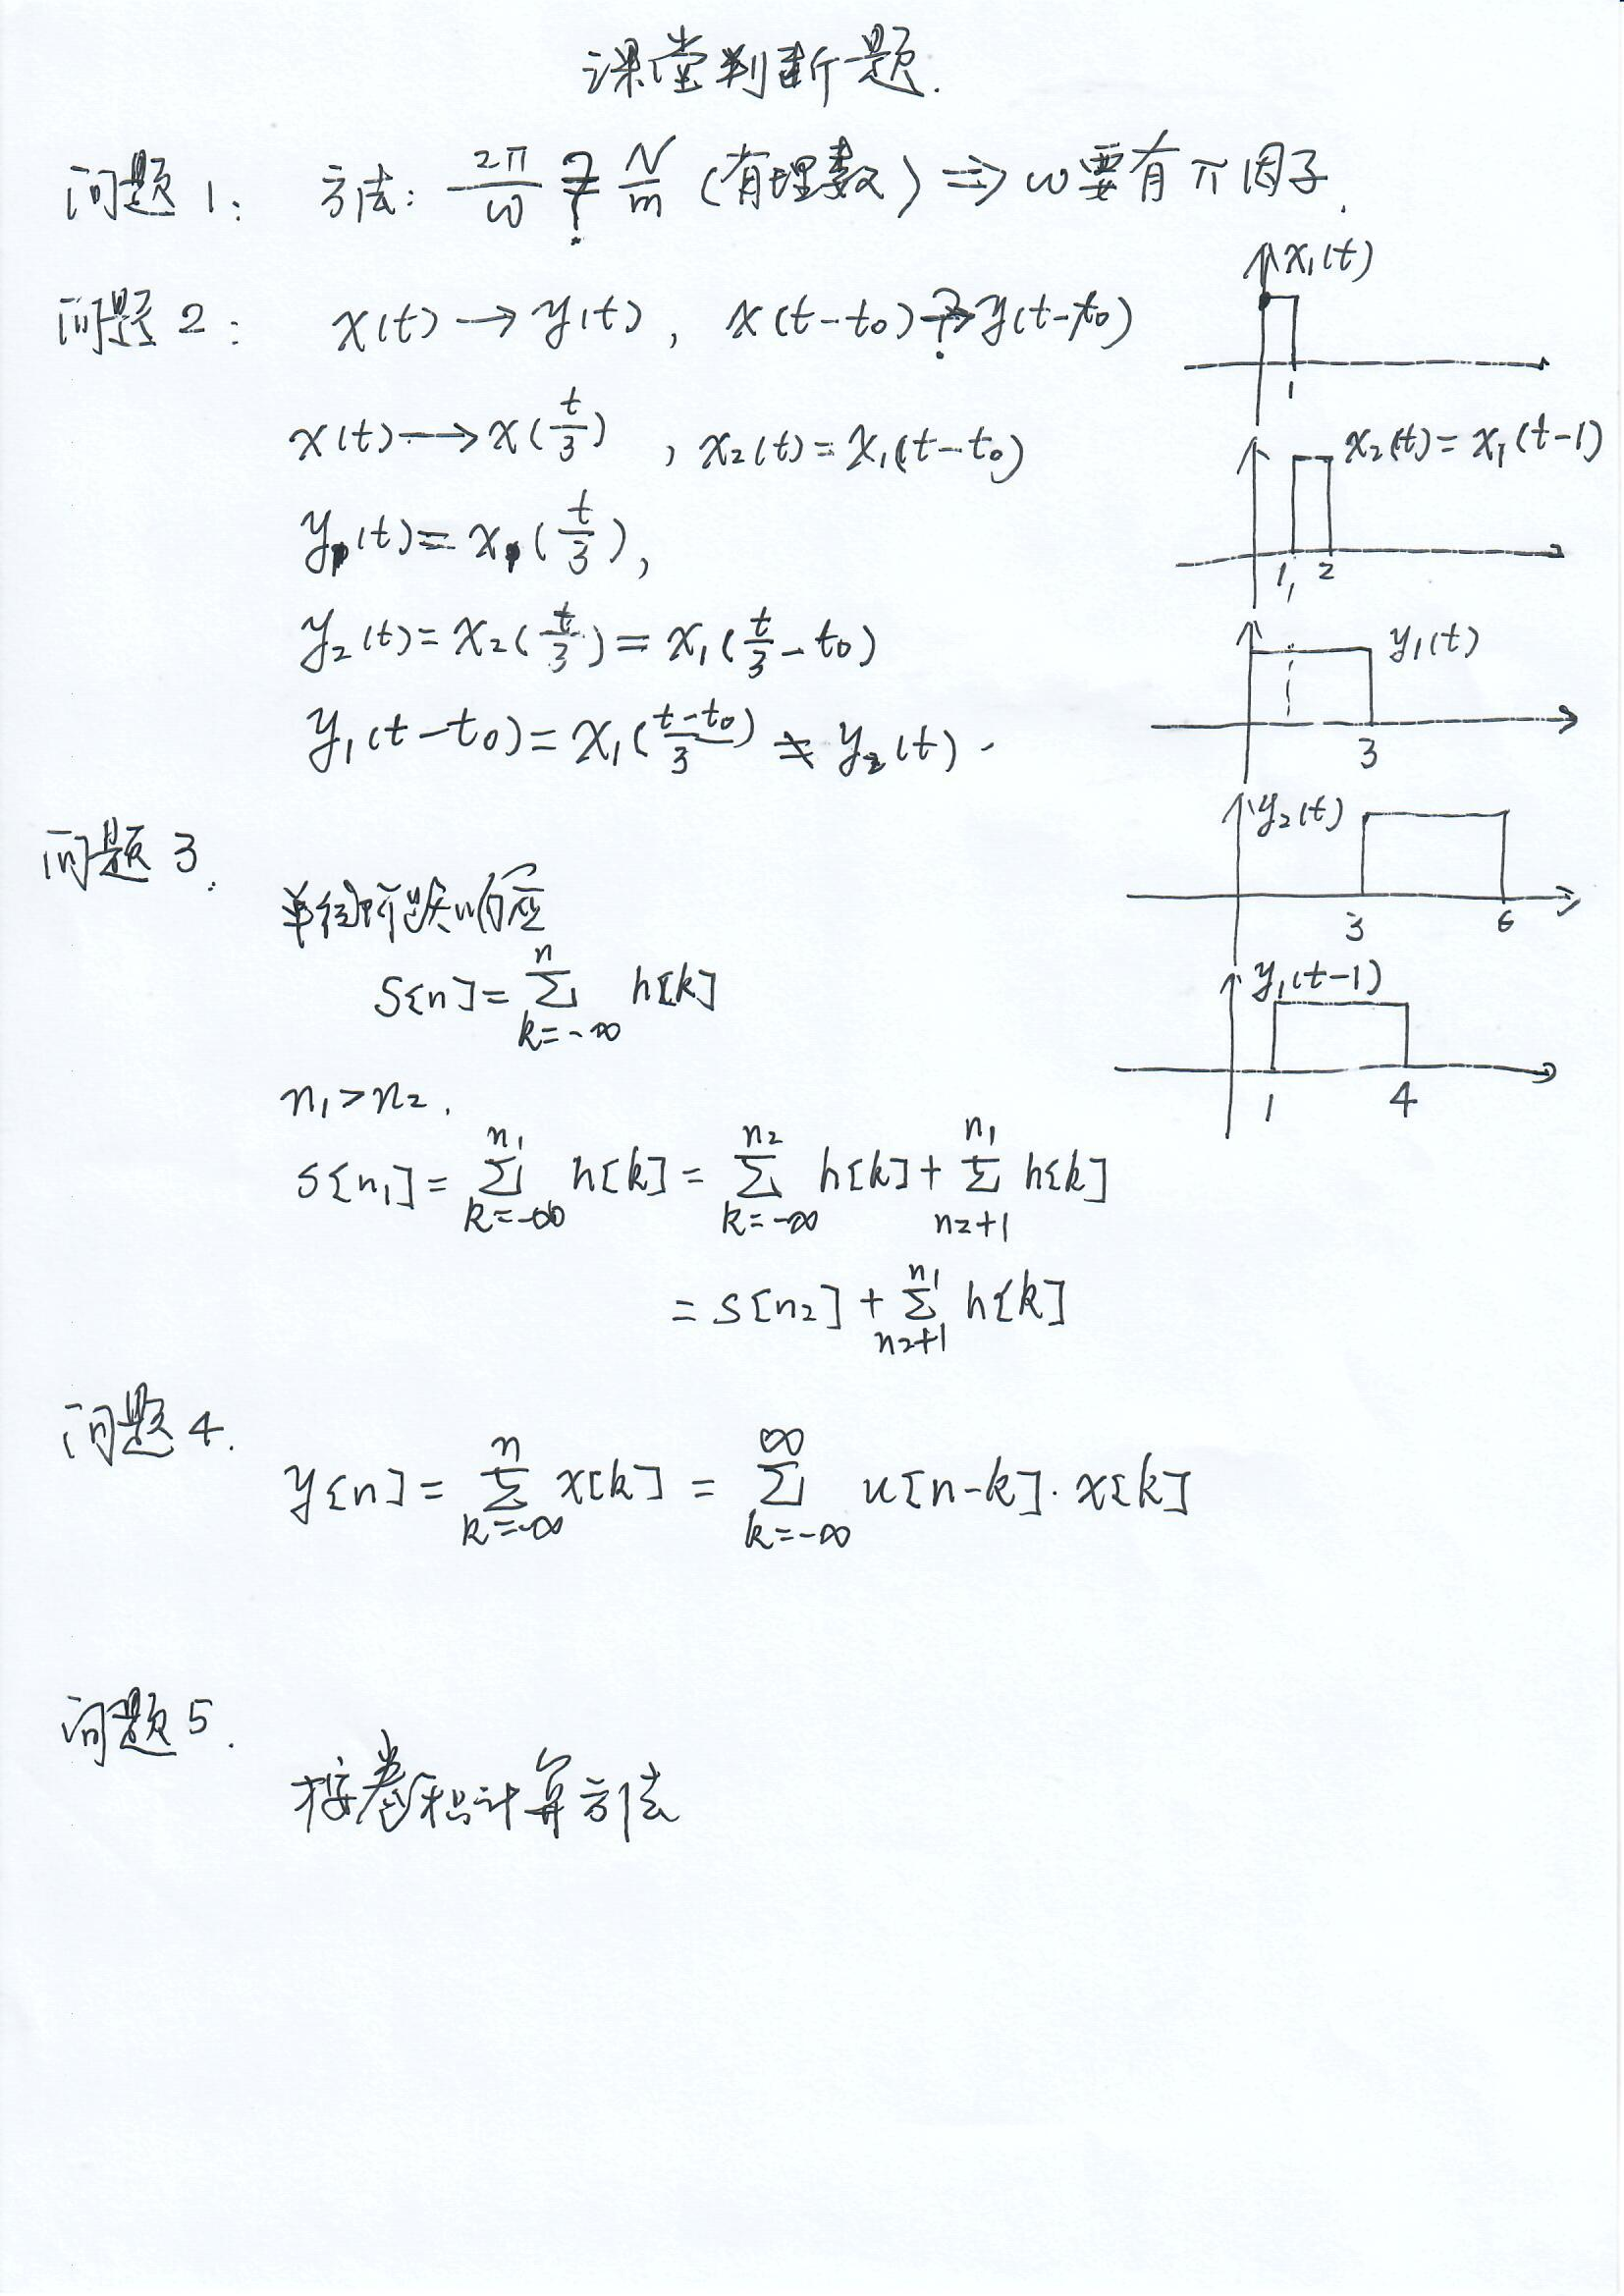 课堂判断题.
问题1: 方法: 2π/ω ?= N/m (有理数) ⇒ ω要有π因子.
问题2: x(t) → y(t), x(t-t₀) ?→ y(t-t₀)
x(t) → x(t/3), x₂(t) = x₁(t-t₀)
y₁(t) = x₁(t/3),
y₂(t) = x₂(t/3) = x₁(t/3 - t₀)
y₁(t-t₀) = x₁((t-t₀)/3) ≠ y₂(t).
x₁(t)
1
x₂(t) = x₁(t-1)
1, 2
y₁(t)
3
y₂(t)
3 6
y₁(t-1)
1 4
问题3.
单位阶跃响应
s[n] = ∑_{k=-∞}^{n} h[k]
n₁ > n₂.
s[n₁] = ∑_{k=-∞}^{n₁} h[k] = ∑_{k=-∞}^{n₂} h[k] + ∑_{n₂+1}^{n₁} h[k]
= s[n₂] + ∑_{n₂+1}^{n₁} h[k]
问题4.
y[n] = ∑_{k=-∞}^{n} x[k] = ∑_{k=-∞}^{∞} u[n-k]·x[k]
问题5.
按卷积计算方法